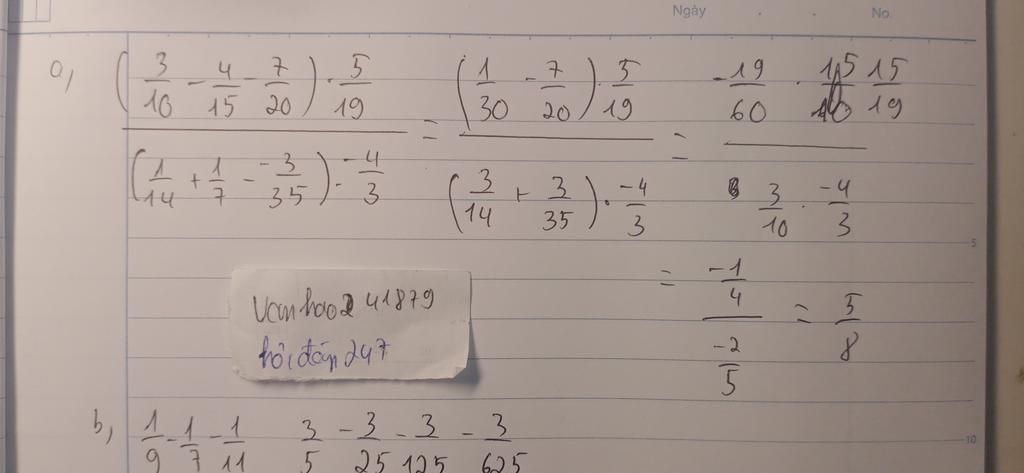 Ngày . . No.
a, (3/10 - 4/15 - 7/20) · 5/19 / (1/14 + 1/7 - -3/35) · -4/3 = (1/30 - 7/20) · 5/19 / (3/14 + 3/35) · -4/3 = -19/60 · 15/19 / 3/10 · -4/3
= -1/4 / -2/5 = 5/8
Vanhao241879
hỏi đáp 247
b, 1/9 - 1/7 - 1/11 3/5 - 3/25 - 3/125 - 3/625
5
10